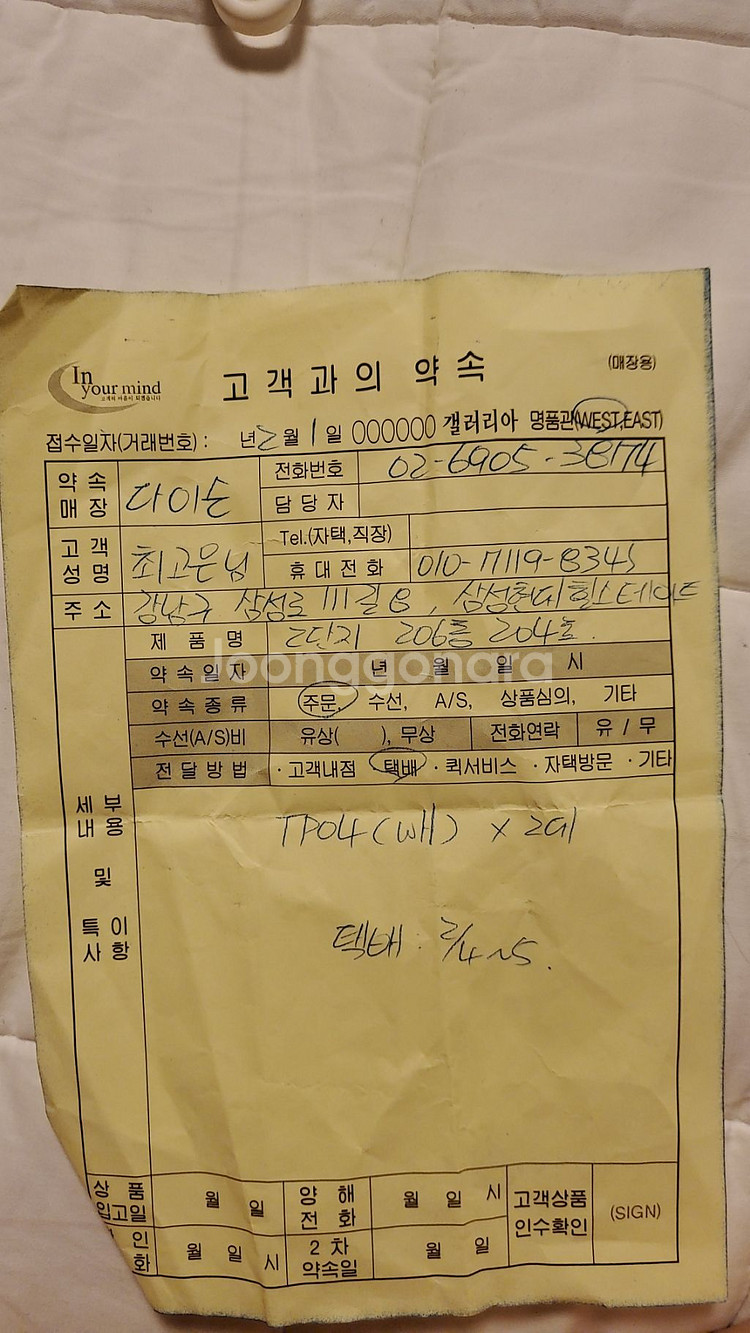 In
your mind
고객의 마음이 되겠습니다
고객과의 약속
(매장용)
접수일자(거래번호) : 년 2 월 1 일 000000 갤러리아 명품관(WEST,EAST)
약속매장 다이슨 전화번호 02-6905-3874
담당자
고객성명 최고은님 Tel.(자택,직장)
휴대전화 010-7119-8345
주소 강남구 삼성로 111길 8, 삼성현대힐스테이트
제품명 2단지 206동 204호.
약속일자 년 월 일 시
약속종류 주문, 수선, A/S, 상품심의, 기타
수선(A/S)비 유상( ), 무상 전화연락 유 / 무
전달방법 ·고객내점 ·택배 ·퀵서비스 ·자택방문 ·기타
세부내용 및 특이사항
TP04 (wh) x 2대
택배 : 2/4~5.
상품입고일 월 일 양해전화 월 일 시 고객상품인수확인 (SIGN)
인화 월 일 시 2차약속일 월 일
Joonggonara